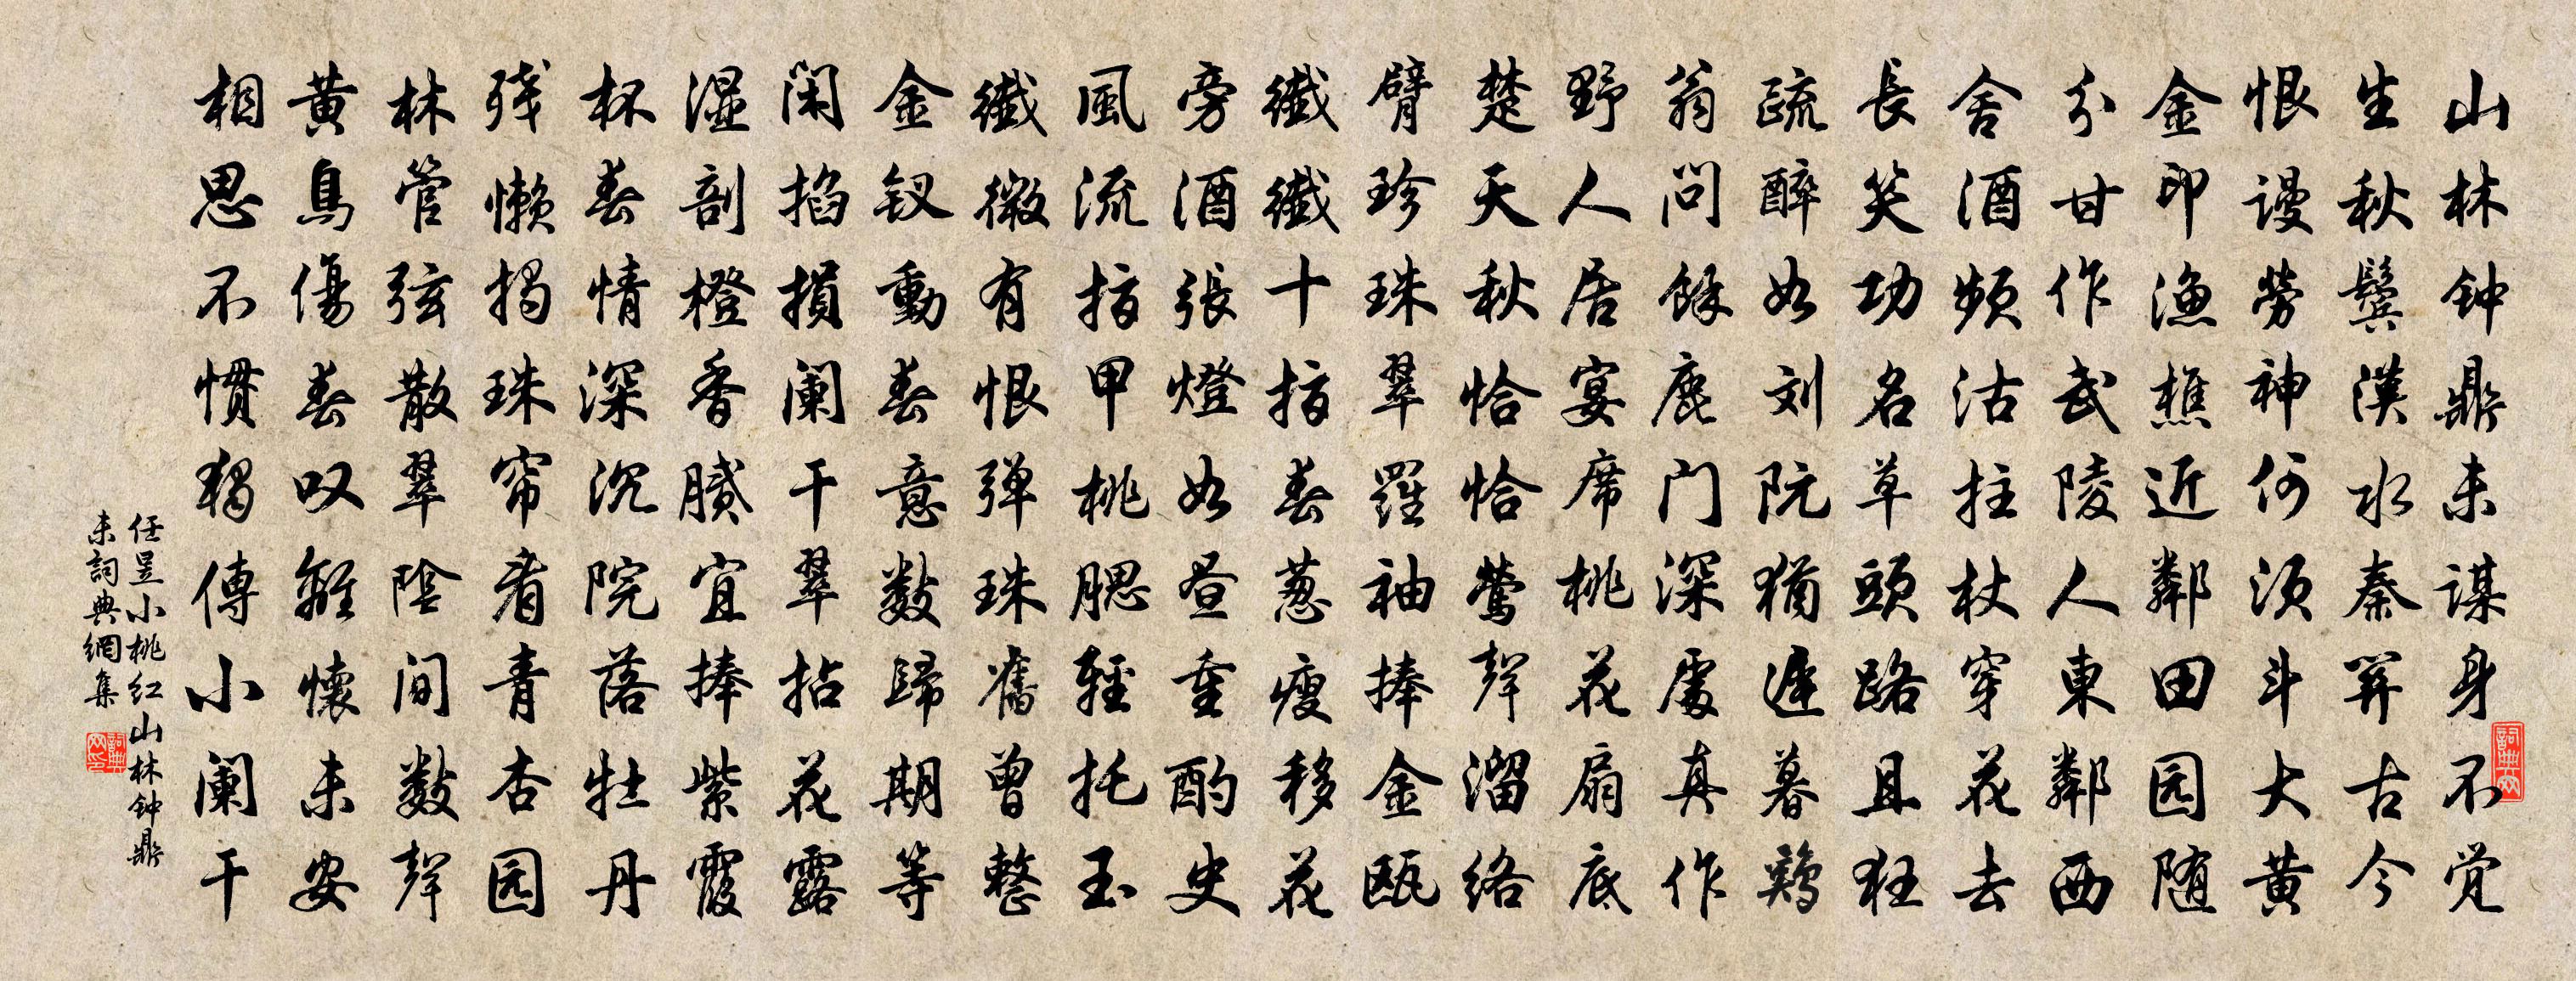 山林钟鼎未谋身不觉
生秋鬓漢水秦関古今
恨谩劳神何须斗大黄
金印渔樵近鄰田园随
分甘作武陵人東鄰西
舍酒频沽拄杖穿花去
長笑功名草頭路且狂
疏醉如刘阮猶遲暮鶏
翁問餘鹿门深處真作
野人居宴席桃花扇底
楚天秋恰恰莺聲溜络
臂珍珠翠羅袖捧金瓯
纖纖十指春葱瘦移花
旁酒張燈如昼重酌史
風流指甲桃腮輕托玉
纖微有恨弹珠舊曾整
金钗動春意数歸期等
闲掐損阑干翠拈花露
湿剖橙香腻宜捧紫霞
杯春情深沉院落牡丹
残懒揭珠帘看青杏园
林管弦散翠陰间数聲
黄鳥傷春叹離懷未安
相思不惯獨傳小阑干
任昱小桃红山林钟鼎
未詞典網集
詞典网
詞典网印